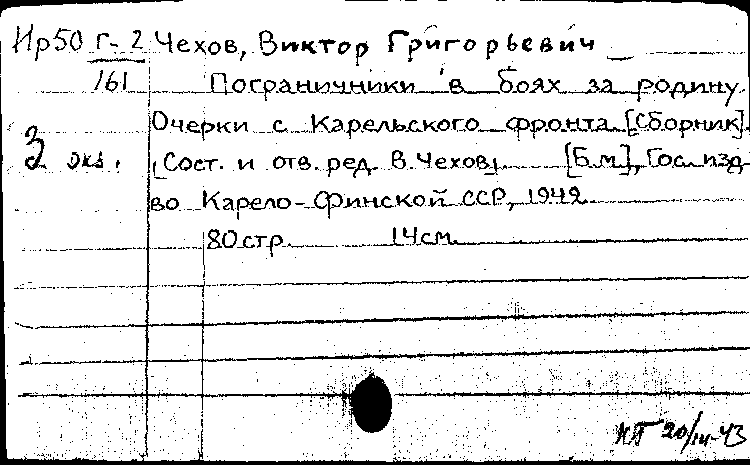 Ир50 Г-2 Чехов, Виктор Григорьевич
161 Пограничники в боях за родину.
Очерки с Карельского фронта. [Сборник].
3 экз. (Сост. и отв. ред. В. Чехов). [Б.м], Гос. изд-
во Карело-Финской ССР, 1942.
80 стр. 14 см.
20/III-43